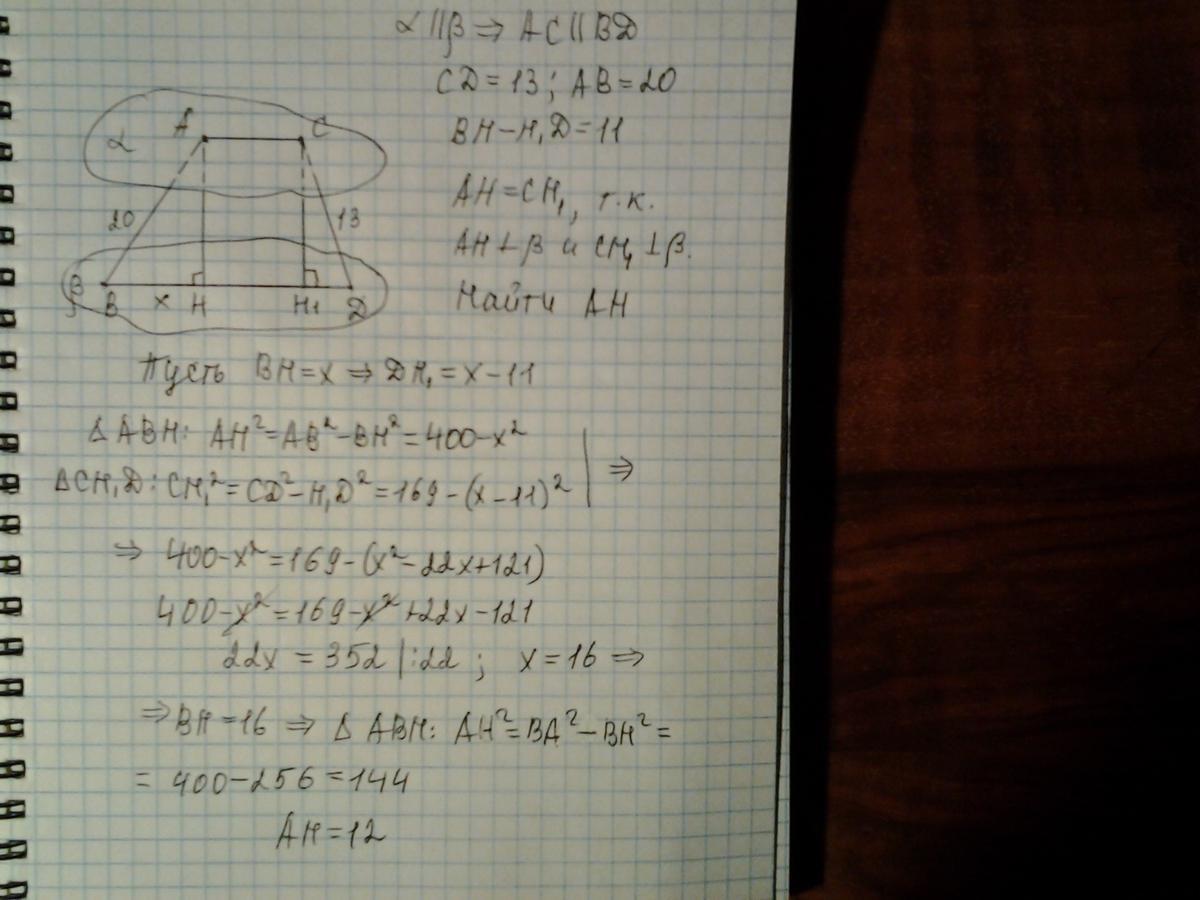 α || β ⇒ AC || BD
CD = 13; AB = 20
BH − H₁D = 11
AH = CH₁, т.к.
AH ⊥ β и CH₁ ⊥ β.
Найти AH
α
A
C
20
13
β
B
x
H
H₁
D
Пусть BH = x ⇒ DH₁ = x − 11
Δ ABH: AH² = AB² − BH² = 400 − x²
ΔCH₁D: CH₁² = CD² − H₁D² = 169 − (x − 11)² | ⇒
⇒ 400 − x² = 169 − (x² − 22x + 121)
400 − x² = 169 − x² + 22x − 121
22x = 352 | :22 ; x = 16 ⇒
⇒ BH = 16 ⇒ Δ ABH: AH² = BA² − BH² =
= 400 − 256 = 144
AH = 12